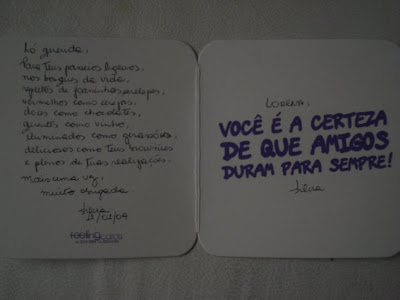 Lô querida,
Para teus passeios ligeiros,
nos bosques da vida,
repletos de joaninhas sardentas,
vermelhos como cerejas,
doces como chocolates,
quentes como vinho,
iluminados como girassóis,
deliciosos como teus brownies
e plenos de tuas realizações.
Mais uma vez,
muito obrigada.
Silvia
15/01/09
feelingcards
LORENA,
VOCÊ É A CERTEZA
DE QUE AMIGOS
DURAM PARA SEMPRE!
Silvia